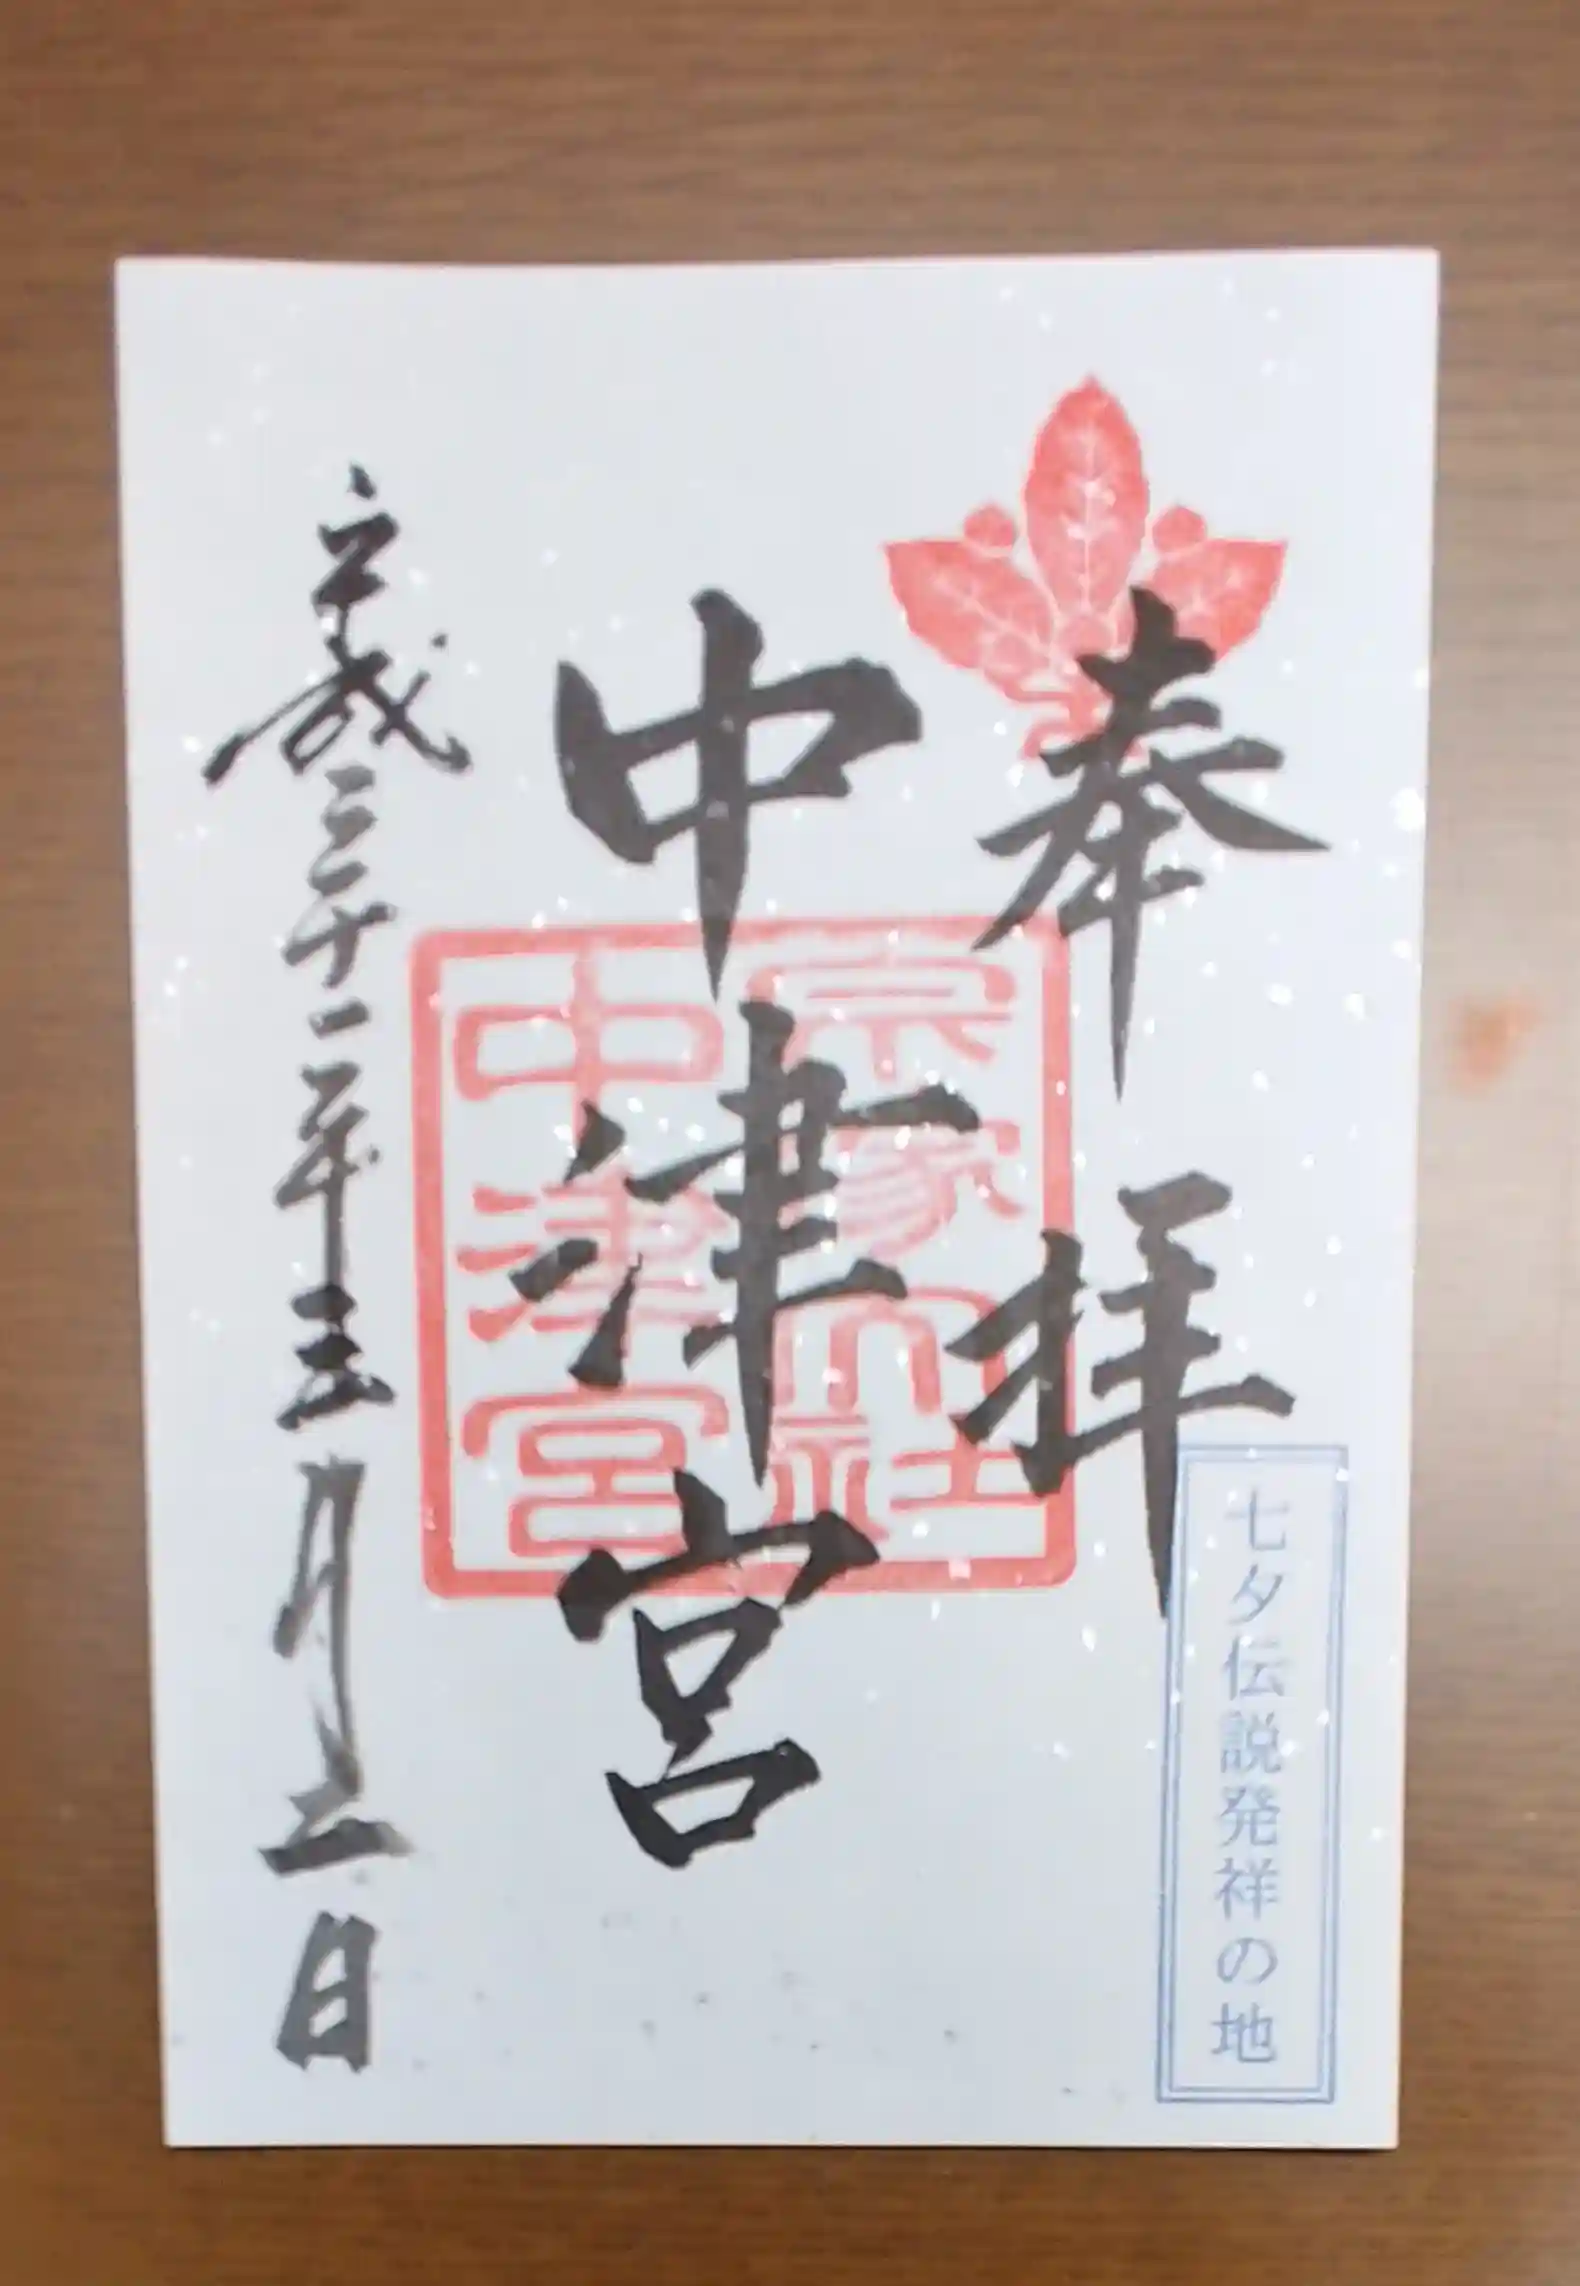 奉拝
七夕伝説発祥の地
中津宮
宗像大社
中津宮
平成三十一年三月二日